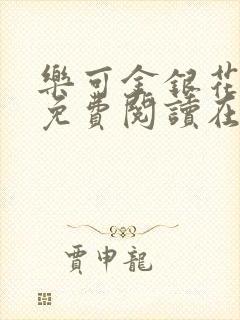 樂可金銀花
免費閱讀在
賈申龍